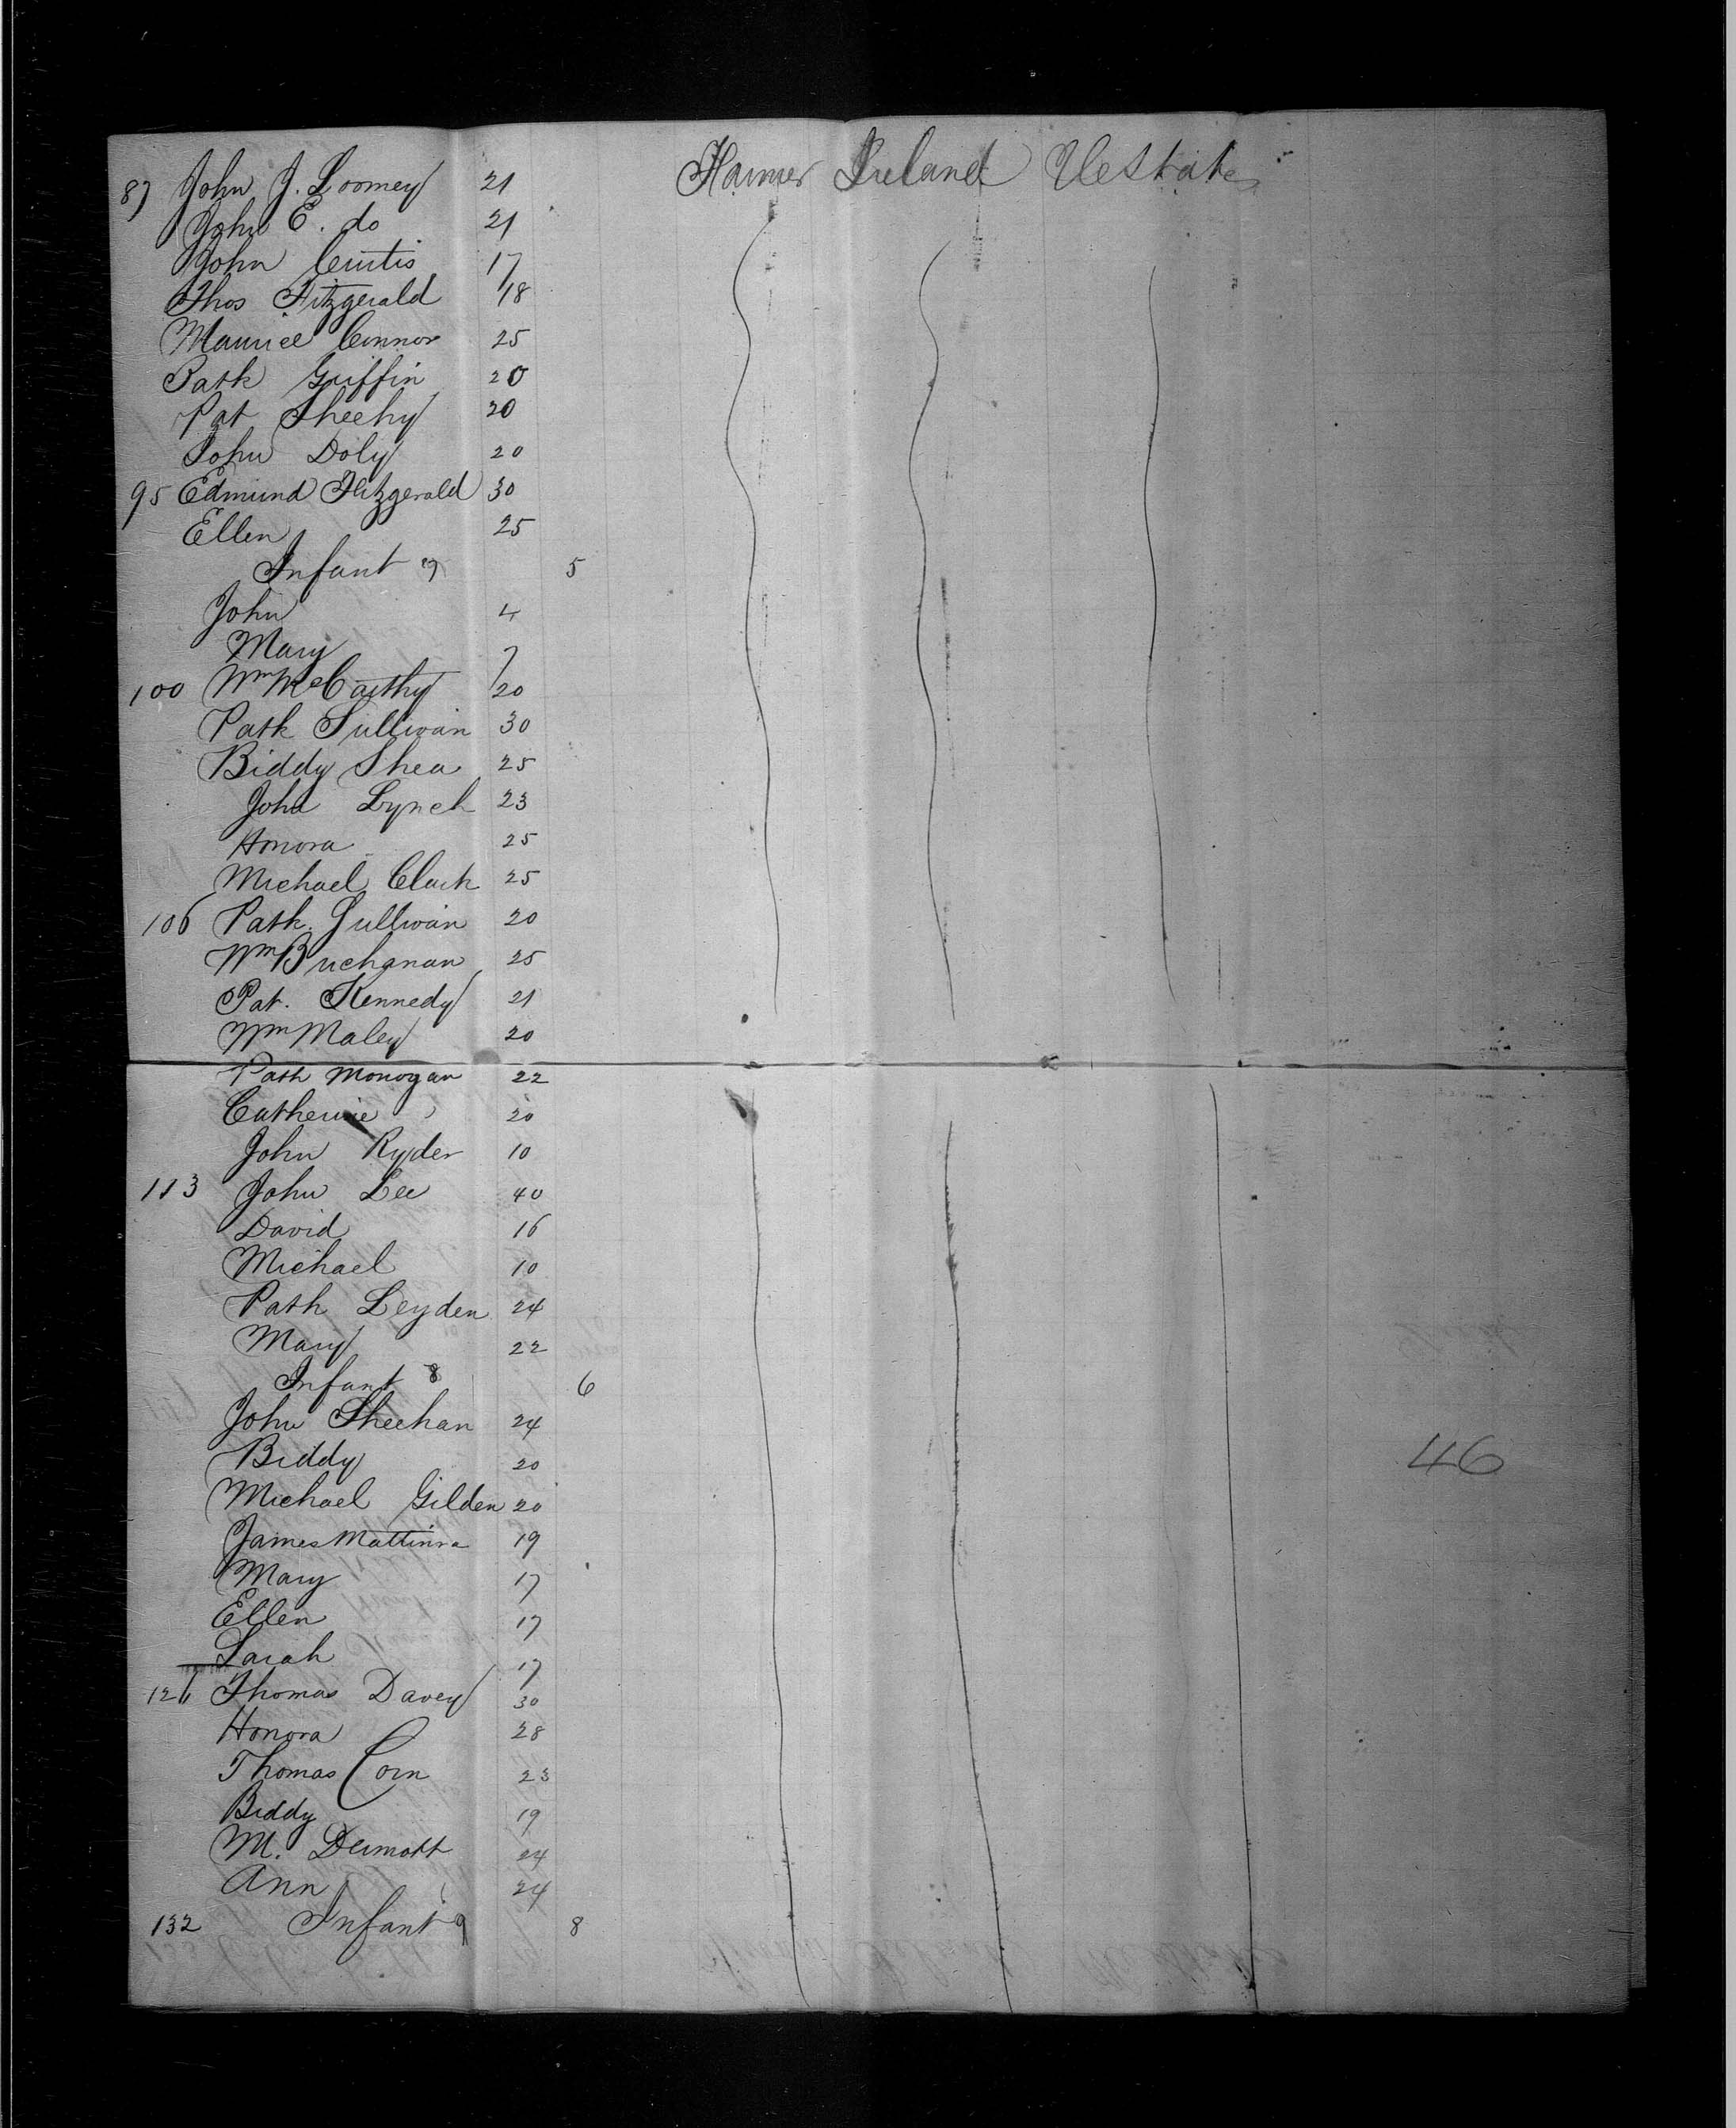 87 John J. Loomey 21 Farmer Ireland U States
John E. do 21
John Curtis 17
Thos Fitzgerald 18
Maurice Connor 25
Patk Griffin 20
Pat Sheehy 20
John Doly 20
95 Edmund Fitzgerald 30
Ellen 25
Infant 9 5
John 4
Mary 7
100 Wm McCarthy 20
Patk Sullivan 30
Biddy Shea 25
John Lynch 23
Honora 25
Michael Clark 25
106 Patk. Sullivan 20
Wm Buchanan 25
Pat. Kennedy 21
Wm Maley 20
Patk Monogan 22
Catherine 20
John Ryder 10
113 John Lee 40
David 16
Michael 10
Patk Leyden 24
Mary 22
Infant 8 6
John Sheehan 24
Biddy 20
Michael Gilden 20
46
James 19
Mary 17
Ellen 17
Sarah 17
126 Thomas Davey 30
Honora 28
Thomas Corn 23
Biddy 19
M. Dermott 24
Ann 24
132 Infant 9 8